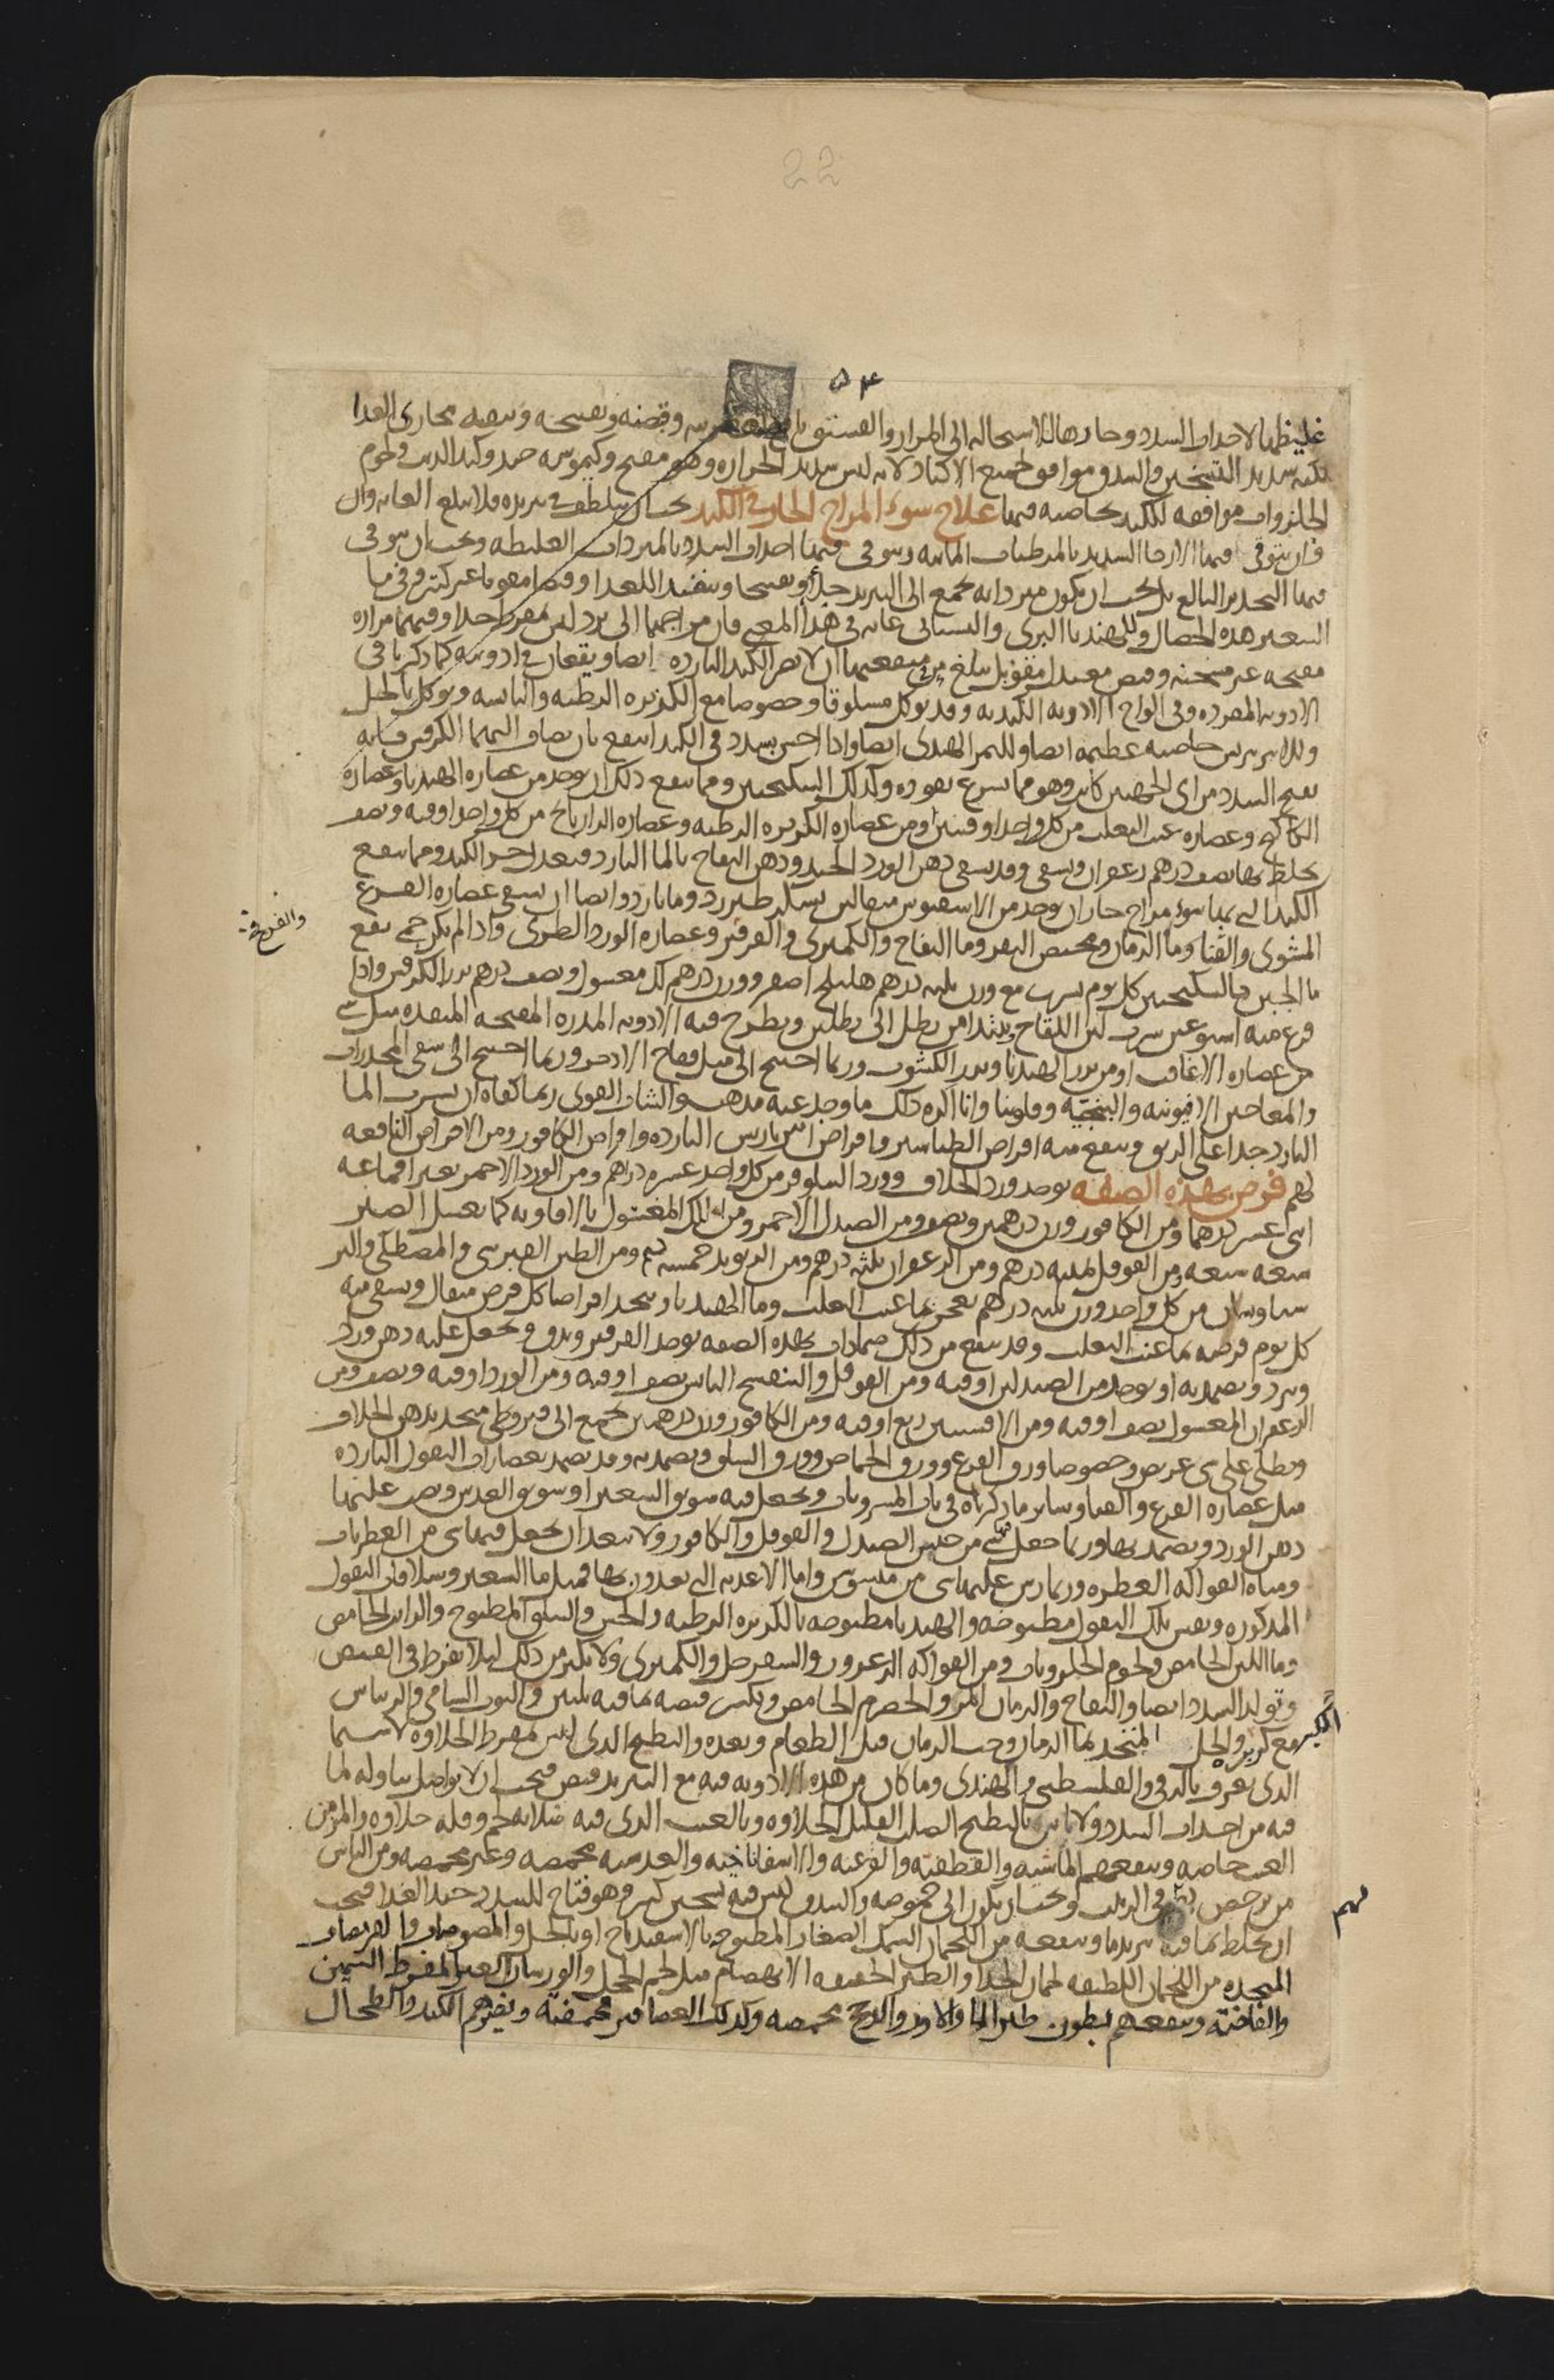 22
٥٤
غليظهما لاحداث السدد وحارهما للاستحاله الى المرار والفستق نافع لعطريته وقبضه وتفتيحه وتنقيته مجارى الغذا
لكنه شديد التسخين والبندق موافق لجميع الاكباد لانه ليس بشديد الحراره وهو مفتح وكيموسه جيد وكبد الذيب ولحوم
الحلزونات موافقه للكبد بخاصيه فيها علاج سوء المزاج الحار فى الكبد يجب ان يتلطف فى تبريده فلا يبلغ الغايه وان
فان يتوقى فيها الارخا الشديد بالمرطبات المائيه ويتوقى فيها احداث السدد بالمبردات الغليظه ويجب ان يتوقى
فيها التخدير البالغ بل يجب ان يكون مبرداته تجمع الى التبريد جلاء وتفتيحا وتنفيذا للغذا وقبضا مقويا غير كثير وفى ما
الشعير هذه الخصال وللهندبا البرى والبستانى غايه فى هذا المعنى فان مزاجهما الى برد ليس بمفرط جدا وفيهما مراره
مفتحه غير مسخنه وقبض معتدل مقو بل يبلغ من منفعتهما ان لا تضر الكبد البارده ايضا ويقعان فى ادويته كما ذكرنا فى
الادويه المفرده وفى الواح الادويه الكبديه وقد يوكل مسلوقا وخصوصا مع الكزبره الرطبه واليابسه ويوكل بالخل
وللامبرباريس خاصيه عظيمه ايضا وللتمر الهندى ايضا واذا احس بسدد فى الكبد انتفع بان يضاف اليهما الكرفس فانه
يفتح السدد من اى الجهتين كانت وهو مما يسرع نفوذه وكذلك السكنجبين ومما ينفع ذلك ان يوخذ من عصاره الهندبا وعصاره
الكاكنج وعصاره عنب الثعلب من كل واحد اوقيتين ومن عصاره الكزبره الرطبه وعصاره الرازيانج من كل واحد اوقيه ونصف
يخلط بها نصف درهم زعفران ويسقى وقد يسقى دهن الورد الجيد ودهن التفاح بالما البارد فيعدل حر الكبد ومما ينفع
الكبد التى بها سوء مزاج حار ان يوخذ من الاسفيوس مثقالين بسكر طبرزد وما بارد وايضا ان يسقى عصاره القرع
المشوى والقثا وما الرمان ومخيض البقر وما التفاح والكمثرى والفرفير وعصاره الورد الطرى واذا لم يكن حمى نفع
والفرفخ
ما الجبن بالسكنجبين كل يوم يشرب مع وزن ثلثه درهم هليلج اصفر ووزن درهم لك مغسول ونصف درهم بزر الكرفس واذا
فرغ منه اسبوعين شرب لبن اللقاح يبتدا من رطل الى رطلين ويطرح فيه الادويه المدره المفتحه المنفذه مثل شى
من عصاره الاغافت او من بزر الهندبا وبزر الكشوث وربما احتيج الى مثل فقاح الاذخر وربما احتيج الى سقى المخدرات
والمعاجين الافيونيه والبنجيه وفلونيا وانا اكره ذلك ما وجد عنه مذهب والشاب القوى ربما كفاه ان يشرب الما
البارد جدا على الريق وينفع منه اقراص الطباشير واقراص امبرباريس البارده واقراص الكافور ومن الاقراص النافعه
لهم قرص بهذه الصفه يوخذ ورد الخلاف وورد النيلوفر من كل واحد عشره دراهم ومن الورد الاحمر بغير اقماعه
اثنى عشر درهما ومن الكافور وزن درهمين ونصف ومن الصندل الاحمر ومن اللك المغسول بالافاويه كما يغسل الصبر
سبعه سبعه ومن الفوفل ثلثه درهم ومن الزعفران ثلثه درهم ومن الريوند خمسه درهم ومن الطين القبرسى والمصطكى والبر
سياوشان من كل واحد وزن ثلثه درهم يعجن بما عنب الثعلب وما الهندبا ويتخذ اقراصا كل قرص مثقال ويسقى منه
كل يوم قرصه بما عنب الثعلب وقد ينفع من ذلك ضمادات بهذه الصفه يوخذ الفرفير ويدق ويجعل عليه دهن ورد
ويبرد ويضمد به او يوخذ من الصندلين اوقيه ومن الفوفل والبنفسج اليابس نصف اوقيه ومن الورد اوقيه ونصف ومن
الزعفران المغسول نصف اوقيه ومن الافسنتين ربع اوقيه ومن الكافور وزن درهمين يجمع الى قيروطى متخذ بدهن الخلاف
ويطلى على شى عريض وخصوصا ورق القرع وورق الحماض وورق السلق ويضمد به وقد يضمد بعصارات البقول البارده
مثل عصاره القرع والقثا وساير ما ذكرناه فى باب المشروبات ويجعل فيه سويق الشعير او سويق العدس ويصب عليها
دهن الورد ويضمد بها وربما جعل فيها شى من جنس الصندل والفوفل والكافور ولا يبعد ان يجعل فيها شى من العطريات
ومياه الفواكه العطره وربما رش عليها شى من ميسوس واما الاغذيه التى يغذون بها فمثل ما الشعير وسلاقات البقول
المذكوره ونفس تلك البقول مطبوخه والهندبا مطبوخه بالكزبره الرطبه والخس والسلق المطبوخ والرايب الحامض
وما اللبن الحامض ولحوم الحلزونات ومن الفواكه الزعرور والسفرجل والكمثرى ولا يكثر من ذلك ليلا يفرط فى القبض
وتولد السدد ايضا والتفاح والرمان المز والحصرم الحامض ويكسر قبضه بما فيه تليين والتوت الشامى والريباس
الكبر مع كزبره والخل المتخذ بما الرمان وحب الرمان قبل الطعام وبعده والبطيخ الذى ليس بمفرط الحلاوه لا سيما
الذى يعرف بالرقى والفلسطينى والهندى وما كان من هذه الادويه فيه مع التبريد قبض فيجب ان لا يواصل تناوله لما
فيه من احداث السدد ولا باس بالبطيخ الصلب القليل الحلاوه وبالعنب الذى فيه صلابه لحم وقله حلاوه والمزمن
العنب خاصه وينفعهم الماشيه والقطفيه والقرعيه والاسفاناخيه والعدسيه محمضه وغير محمضه ومن الناس
من يرخص لهم فى الزبيب ويجب ان يكون الى حموضه والبندق ليس فيه تسخين كثير وهو فتاح للسدد جيد الغذا فيجب
لهم
ان يخلط بما فيه تبريد ما وينفعه من اللحمان السمك الصغار المطبوخ بالاسفيدباج او بالخل والمصوصات والقريصات
المتخذه من اللحمان اللطيفه لحمان الجدا والطير الخفيفه الانهضام مثل لحم الحجل والورشان الغير المفرط السمن
والفاخته وينفعهم بطون طير الما والاوز والدجاج محمضه وكذلك العصافير محمضه ويضرهم الكبد والطحال